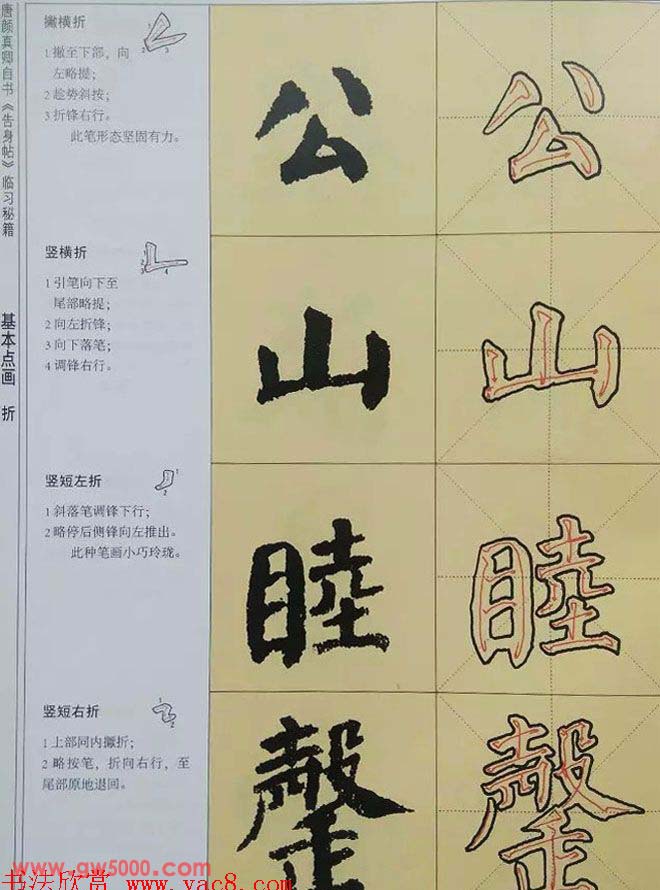 唐颜真卿自书《告身帖》临习秘籍
基本点画 折
撇横折
1 撇至下部，向
左略提；
2 趁势斜按；
3 折锋右行。
此笔形态坚固有力。
公
公
竖横折
1 引笔向下至
尾部略提；
2 向左折锋；
3 向下落笔；
4 调锋右行。
山
山
竖短左折
1 斜落笔调锋下行；
2 略停后侧锋向左推出。
此种笔画小巧玲珑。
睦
睦
竖短右折
1 上部同内擫折；
2 略按笔，折向右行，至
尾部原地退回。
www.gw5000.com
书法欣赏 www.yac8.com